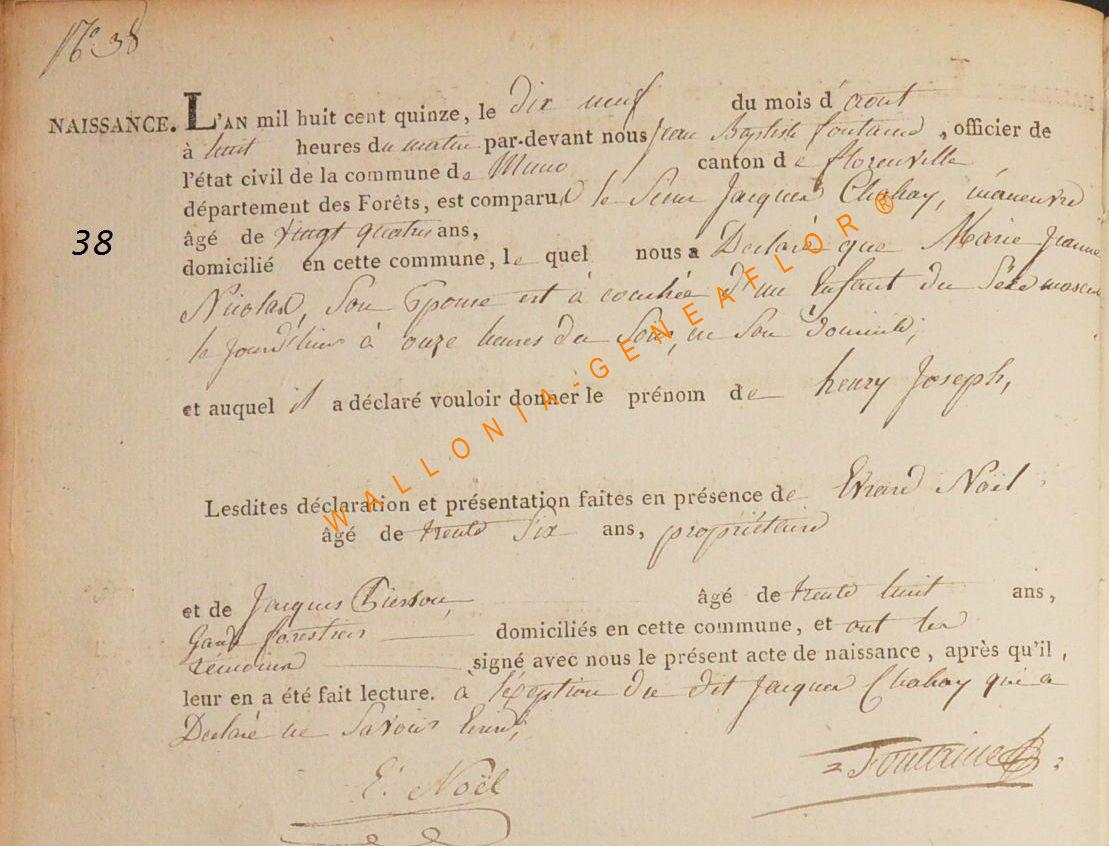 N° 38
NAISSANCE. L'AN mil huit cent quinze, le dix neuf du mois d'aout
à huit heures du matin par-devant nous Jean Baptiste fontaine, officier de
l'état civil de la commune de Muno canton de florenville
département des Forêts, est comparu le Sieur Jacques Chahay, maneuvre
38
âgé de vingt quatre ans,
domicilié en cette commune, le quel nous a Declaré que Marie Jeanne
Nicolas, Son Epouse est à couchée d'un Enfant du Séxe mascu
le jourd'hier à onze heures du Soir, en Son domicile,
et auquel il a déclaré vouloir donner le prénom de henry Joseph,
WALLONIA-GENEAFLOR®
Lesdites déclaration et présentation faites en présence de Evrard Noël
âgé de trente Six ans, propriétaire
et de Jacques Pierson, âgé de trente huit ans,
Gard forestier domiciliés en cette commune, et ont les
témoins signé avec nous le présent acte de naissance, après qu'il,
leur en a été fait lecture. à l'éxeption du dit Jacques Chahay qui a
Declaré ne Savoir
E. Noël
Fontaine